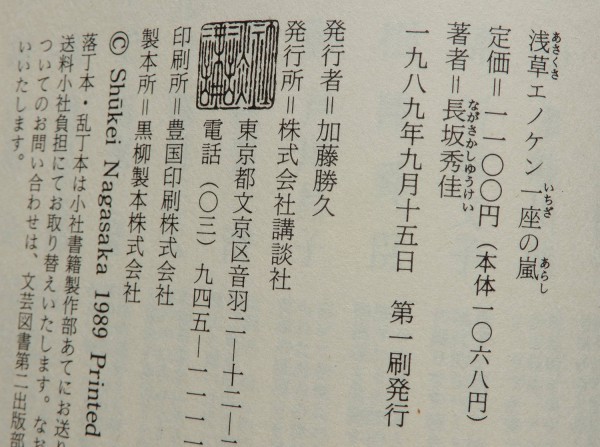 浅草エノケン一座の嵐
あさくさ
いちざ
あらし
定価＝一一〇〇円（本体一〇六八円）
著者＝長坂秀佳
ながさかしゆうけい
一九八九年九月十五日　第一刷発行
発行者＝加藤勝久
発行所＝株式会社講談社
東京都文京区音羽二―十二―
電話（〇三）九四五―一一一
印刷所＝豊国印刷株式会社
製本所＝黒柳製本株式会社
© Shūkei Nagasaka 1989 Printed
落丁本・乱丁本は小社書籍製作部あてにお送り
送料小社負担にてお取り替えいたします。なお
ついてのお問い合わせは、文芸図書第二出版部
いいたします。